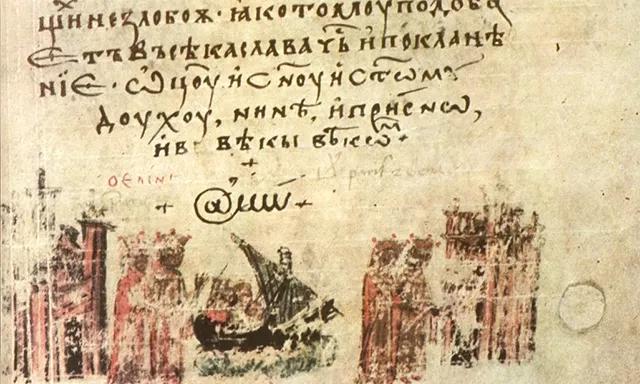 щи незлобѫ· ꙗко томоу подоба
етъ въсѣка слава чⷭ҇ть и поклан҄ѣ
нїе· ѡц҃оу и сн҃оу и ст҃омꙋ
доухоу, нинѣ, и прис҃нѡ,
и въ вѣкы вѣкѡⷨ҇
@мин